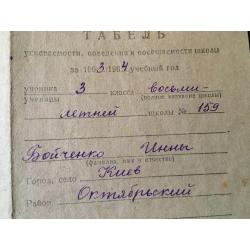 ТАБЕЛЬ
успеваемости, поведения и посещаемости школы
за 1963/1964 учебный год
ученика 3 класса восьми-
ученицы (полное название школы)
летней школы № 159
Бойченко Инны
(фамилия, имя и отчество)
Город, село Киев
Район Октябрьский